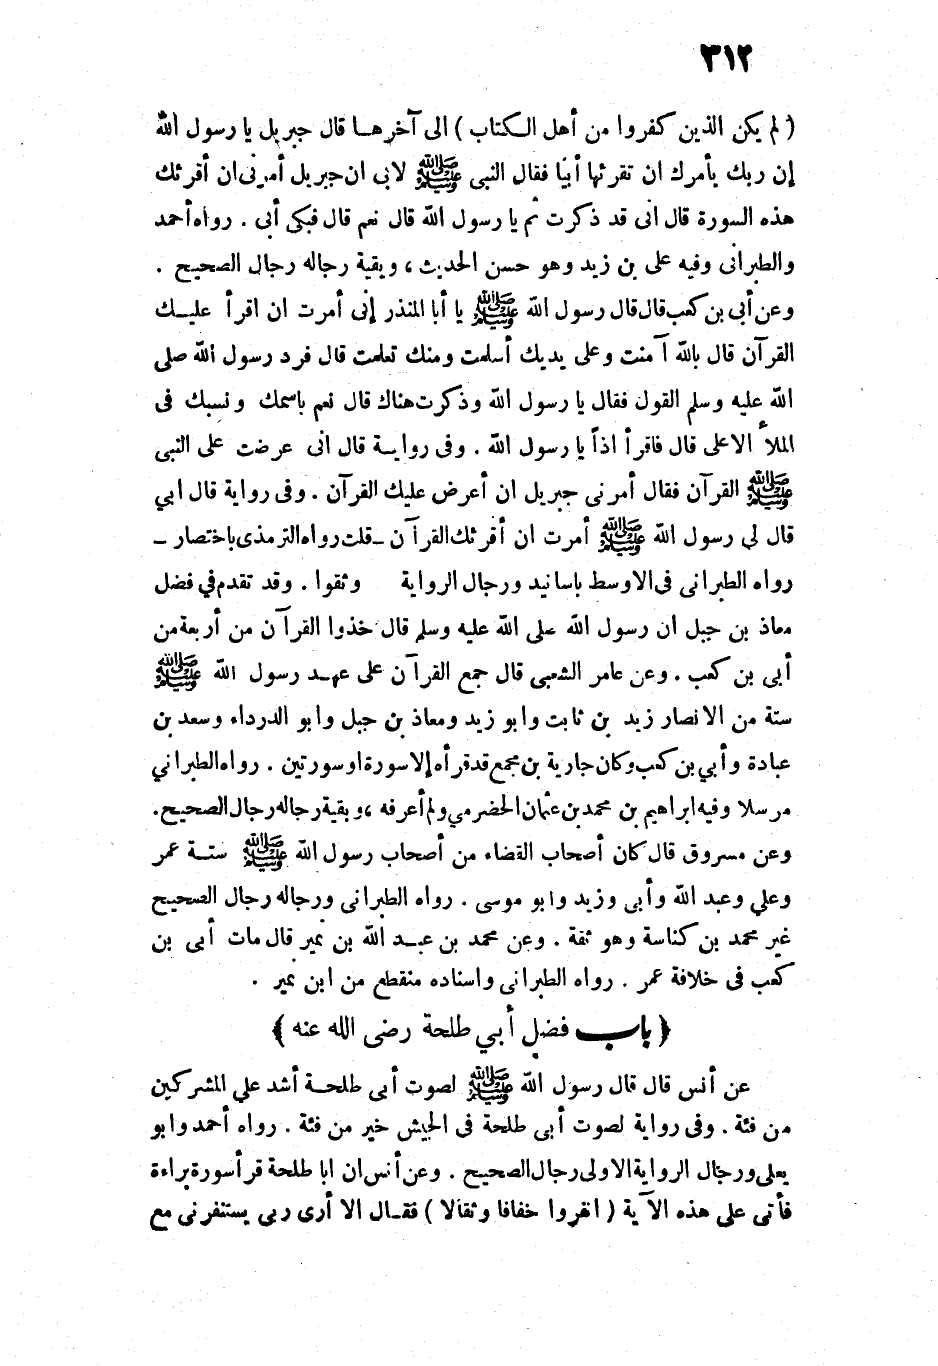 ٣١٢
( لم يكن الذين كفروا من أهل الـكتاب ) الى آخرهـا قال جبريل يا رسول الله
إن ربك يأمرك ان تقرئها أبيا فقال النبى ﷺ لابى ان جبريل أمرنى ان أقرئك
هذه السورة قال انى قد ذكرت ثم يا رسول الله قال نعم قال فبكى أبى . رواه أحمد
والطبرانى وفيه على بن زيد وهو حسن الحديث ، وبقية رجاله رجال الصحيح .
وعن أبى بن كعب قال قال رسول الله ﷺ يا أبا المنذر إنى أمرت ان اقرأ عليـك
القرآن قال بالله آمنت وعلى يديك أسلمت ومنك تعلمت قال فرد رسول الله صلى
الله عليه وسلم القول فقال يا رسول الله وذكرت هناك قال نعم باسمك ونسبك فى
الملأ الاعلى قال فاقرأ اذاً يا رسول الله . وفى روايـة قال انى عرضت على النبى
ﷺ القرآن فقال أمرنى جبريل ان أعرض عليك القرآن . وفى رواية قال ابي
قال لي رسول الله ﷺ أمرت ان أقرئك القرآن ـ قلت رواه الترمذى باختصار ـ
رواه الطبرانى فى الاوسط باسانيد ورجال الرواية وثقوا . وقد تقدم في فضل
معاذ بن جبل ان رسول الله صلى الله عليه وسلم قال خذوا القرآن من أربعة من
أبى بن كعب . وعن عامر الشعبى قال جمع القرآن على عهـد رسول الله ﷺ
ستة من الانصار زيد بن ثابت وابو زيد ومعاذ بن جبل وابو الدرداء وسعد بن
عبادة وأبي بن كعب وكان جارية بن مجمع قد قرأه إلا سورة او سورتين . رواه الطبراني
مرسلا وفيه ابراهيم بن محمد بن عثمان الحضرمي ولم أعرفه ، وبقية رجاله رجال الصحيح.
وعن مسروق قال كان أصحاب القضاء من أصحاب رسول الله ﷺ ستـة عمر
وعلي وعبد الله وأبى وزيد وابو موسى . رواه الطبرانى ورجاله رجال الصحيح
غير محمد بن كناسة وهو ثقة . وعن محمد بن عبـد الله بن نمير قال مات أبى بن
كعب فى خلافة عمر . رواه الطبرانى واسناده منقطع من ابن نمير .
﴿ باب فضل أبي طلحة رضى الله عنه ﴾
عن أنس قال قال رسول الله ﷺ لصوت أبى طلحـة أشد على المشركين
من فئة . وفى رواية لصوت أبى طلحة فى الجيش خير من فئة . رواه أحمد وابو
يعلى ورجال الرواية الاولى رجال الصحيح . وعن أنس ان ابا طلحة قرأ سورة براءة
فأتى على هذه الآية ( انفروا خفافا وثقالا ) فقـال الا أرى ربى يستنفرنى مع